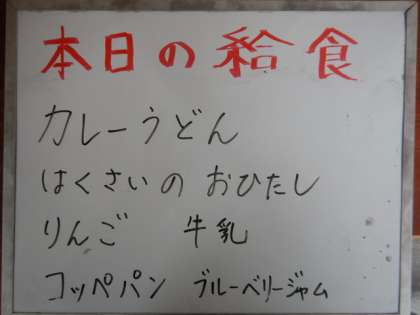 本日の給食
カレーうどん
はくさいの おひたし
りんご 牛乳
コッペパン ブルーベリージャム